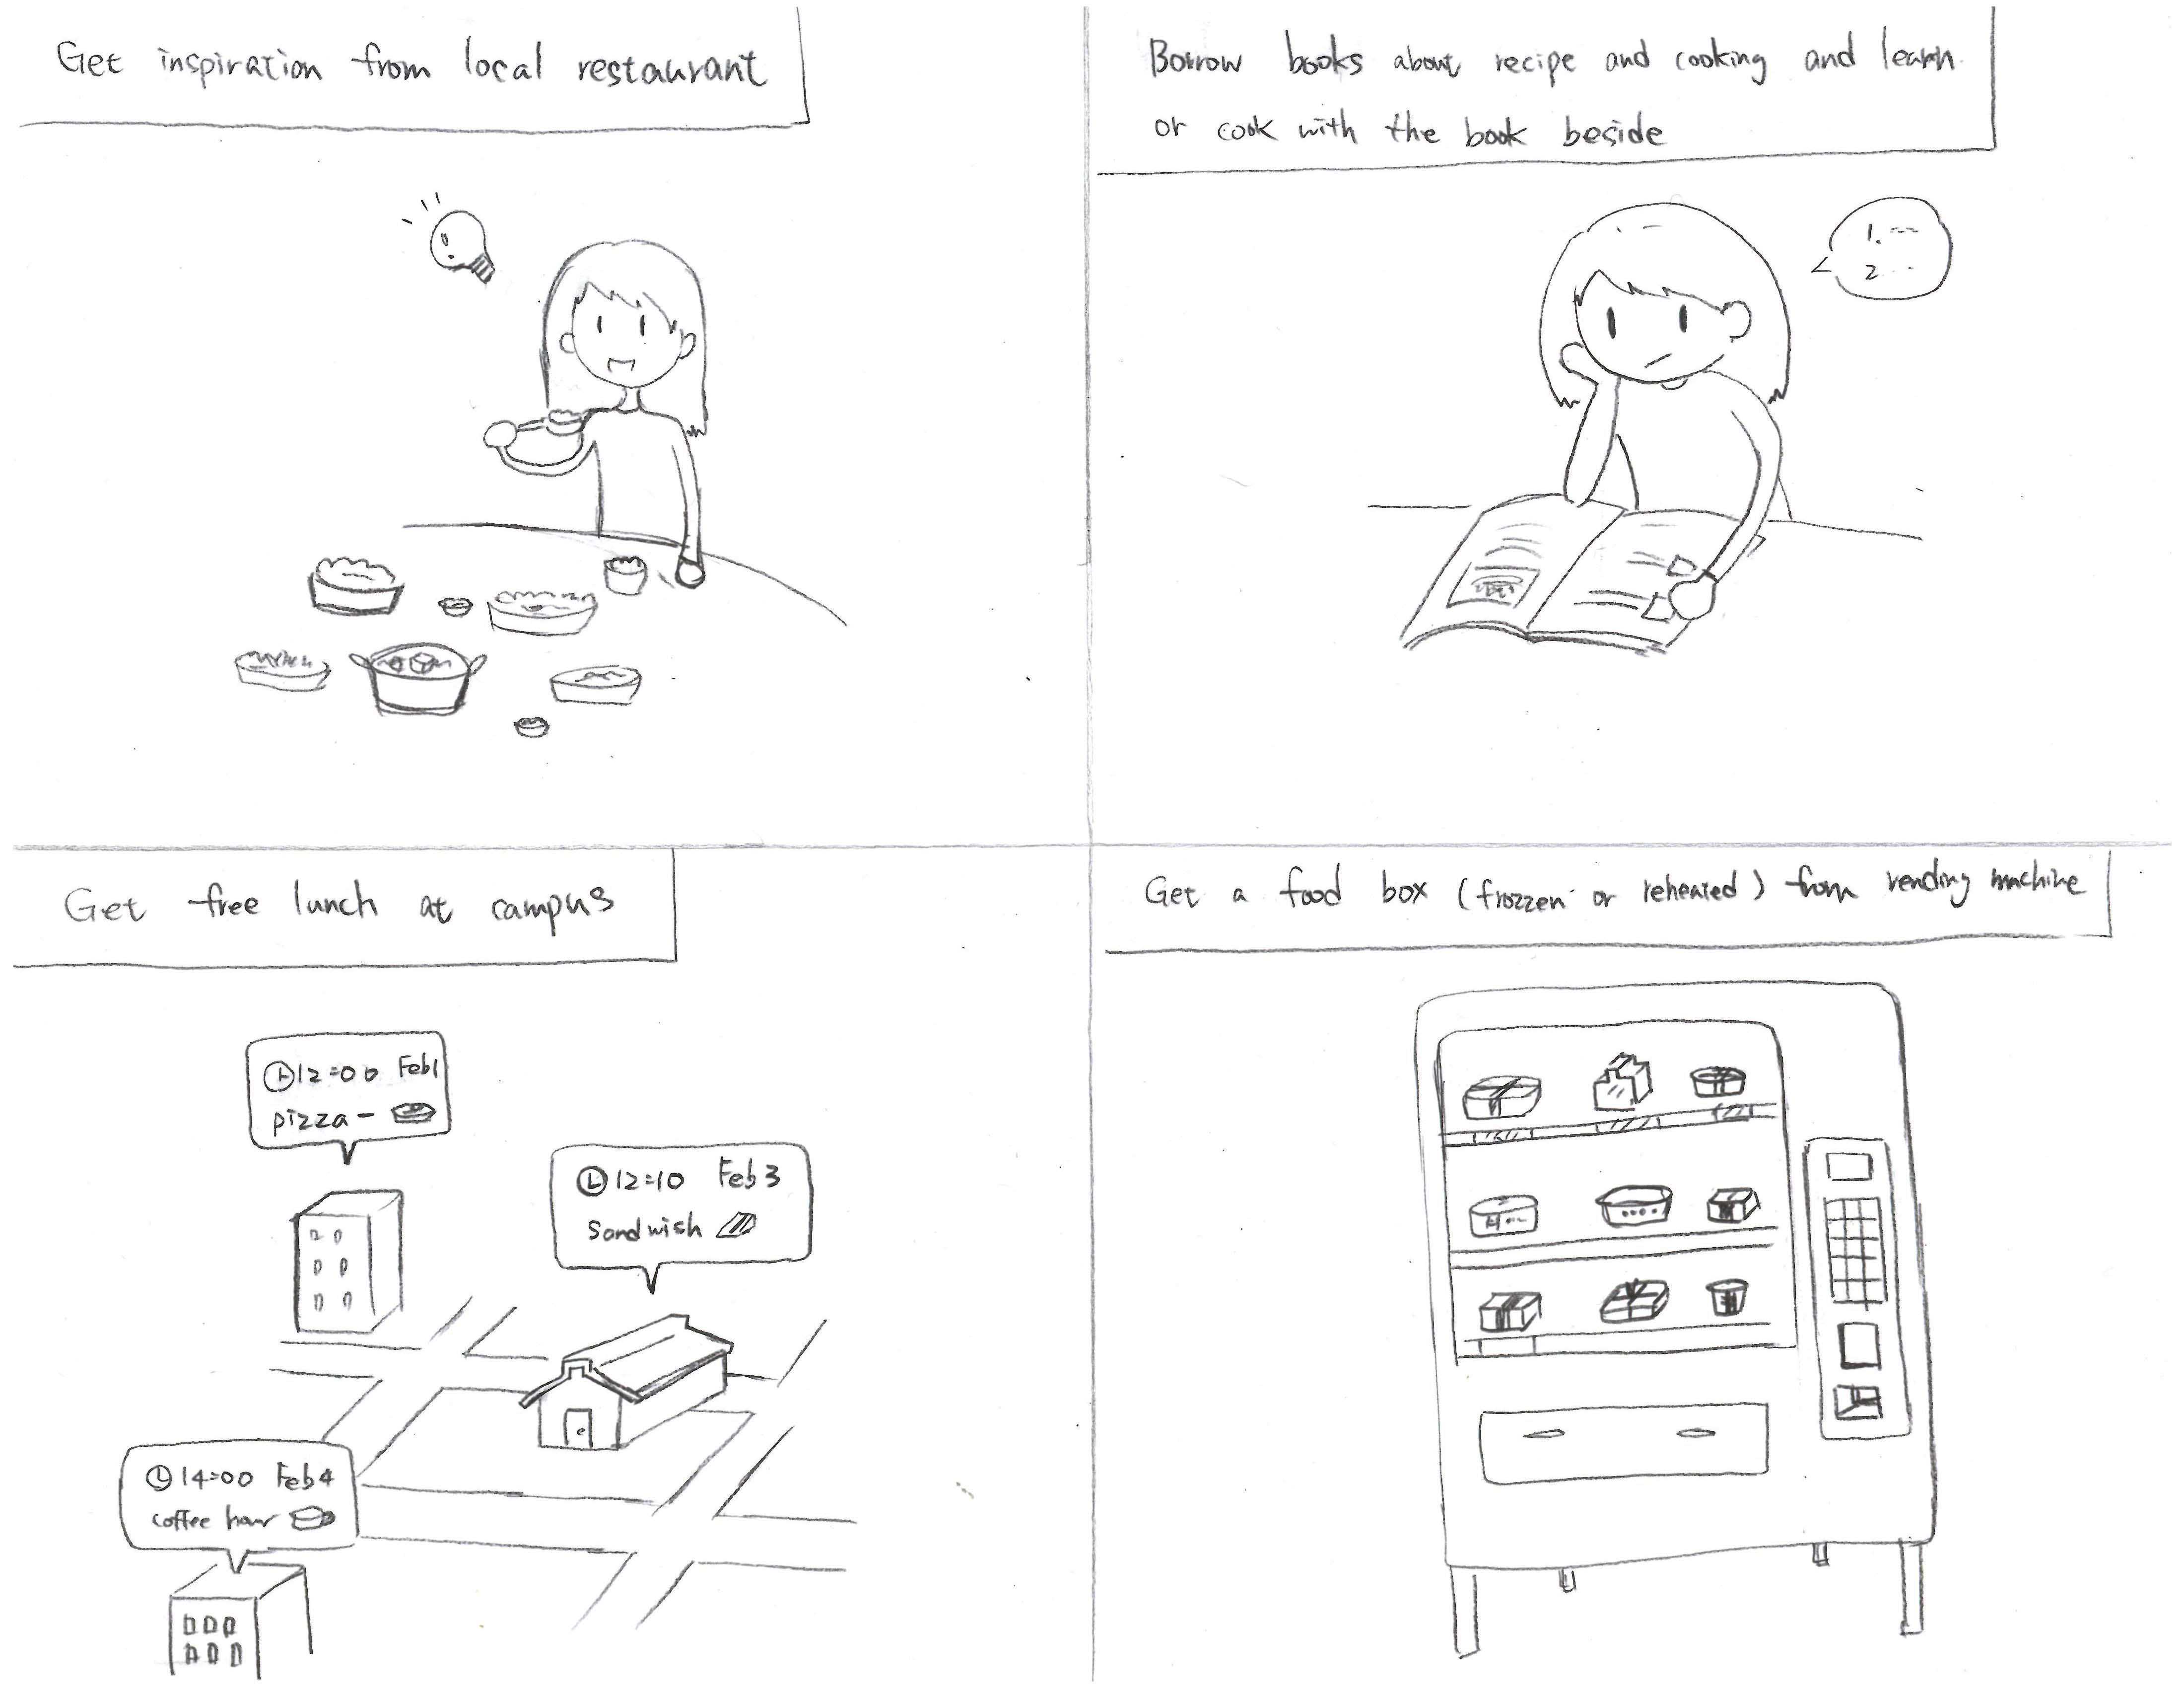 Get inspiration from local restaurant
Borrow books about recipe and cooking and learn
or cook with the book beside
1.
2
Get free lunch at campus
12:00 Feb1
pizza -
12:10 Feb 3
Sandwish
14:00 Feb 4
coffee hour
Get a food box (frozzen or reheated) from vending machine